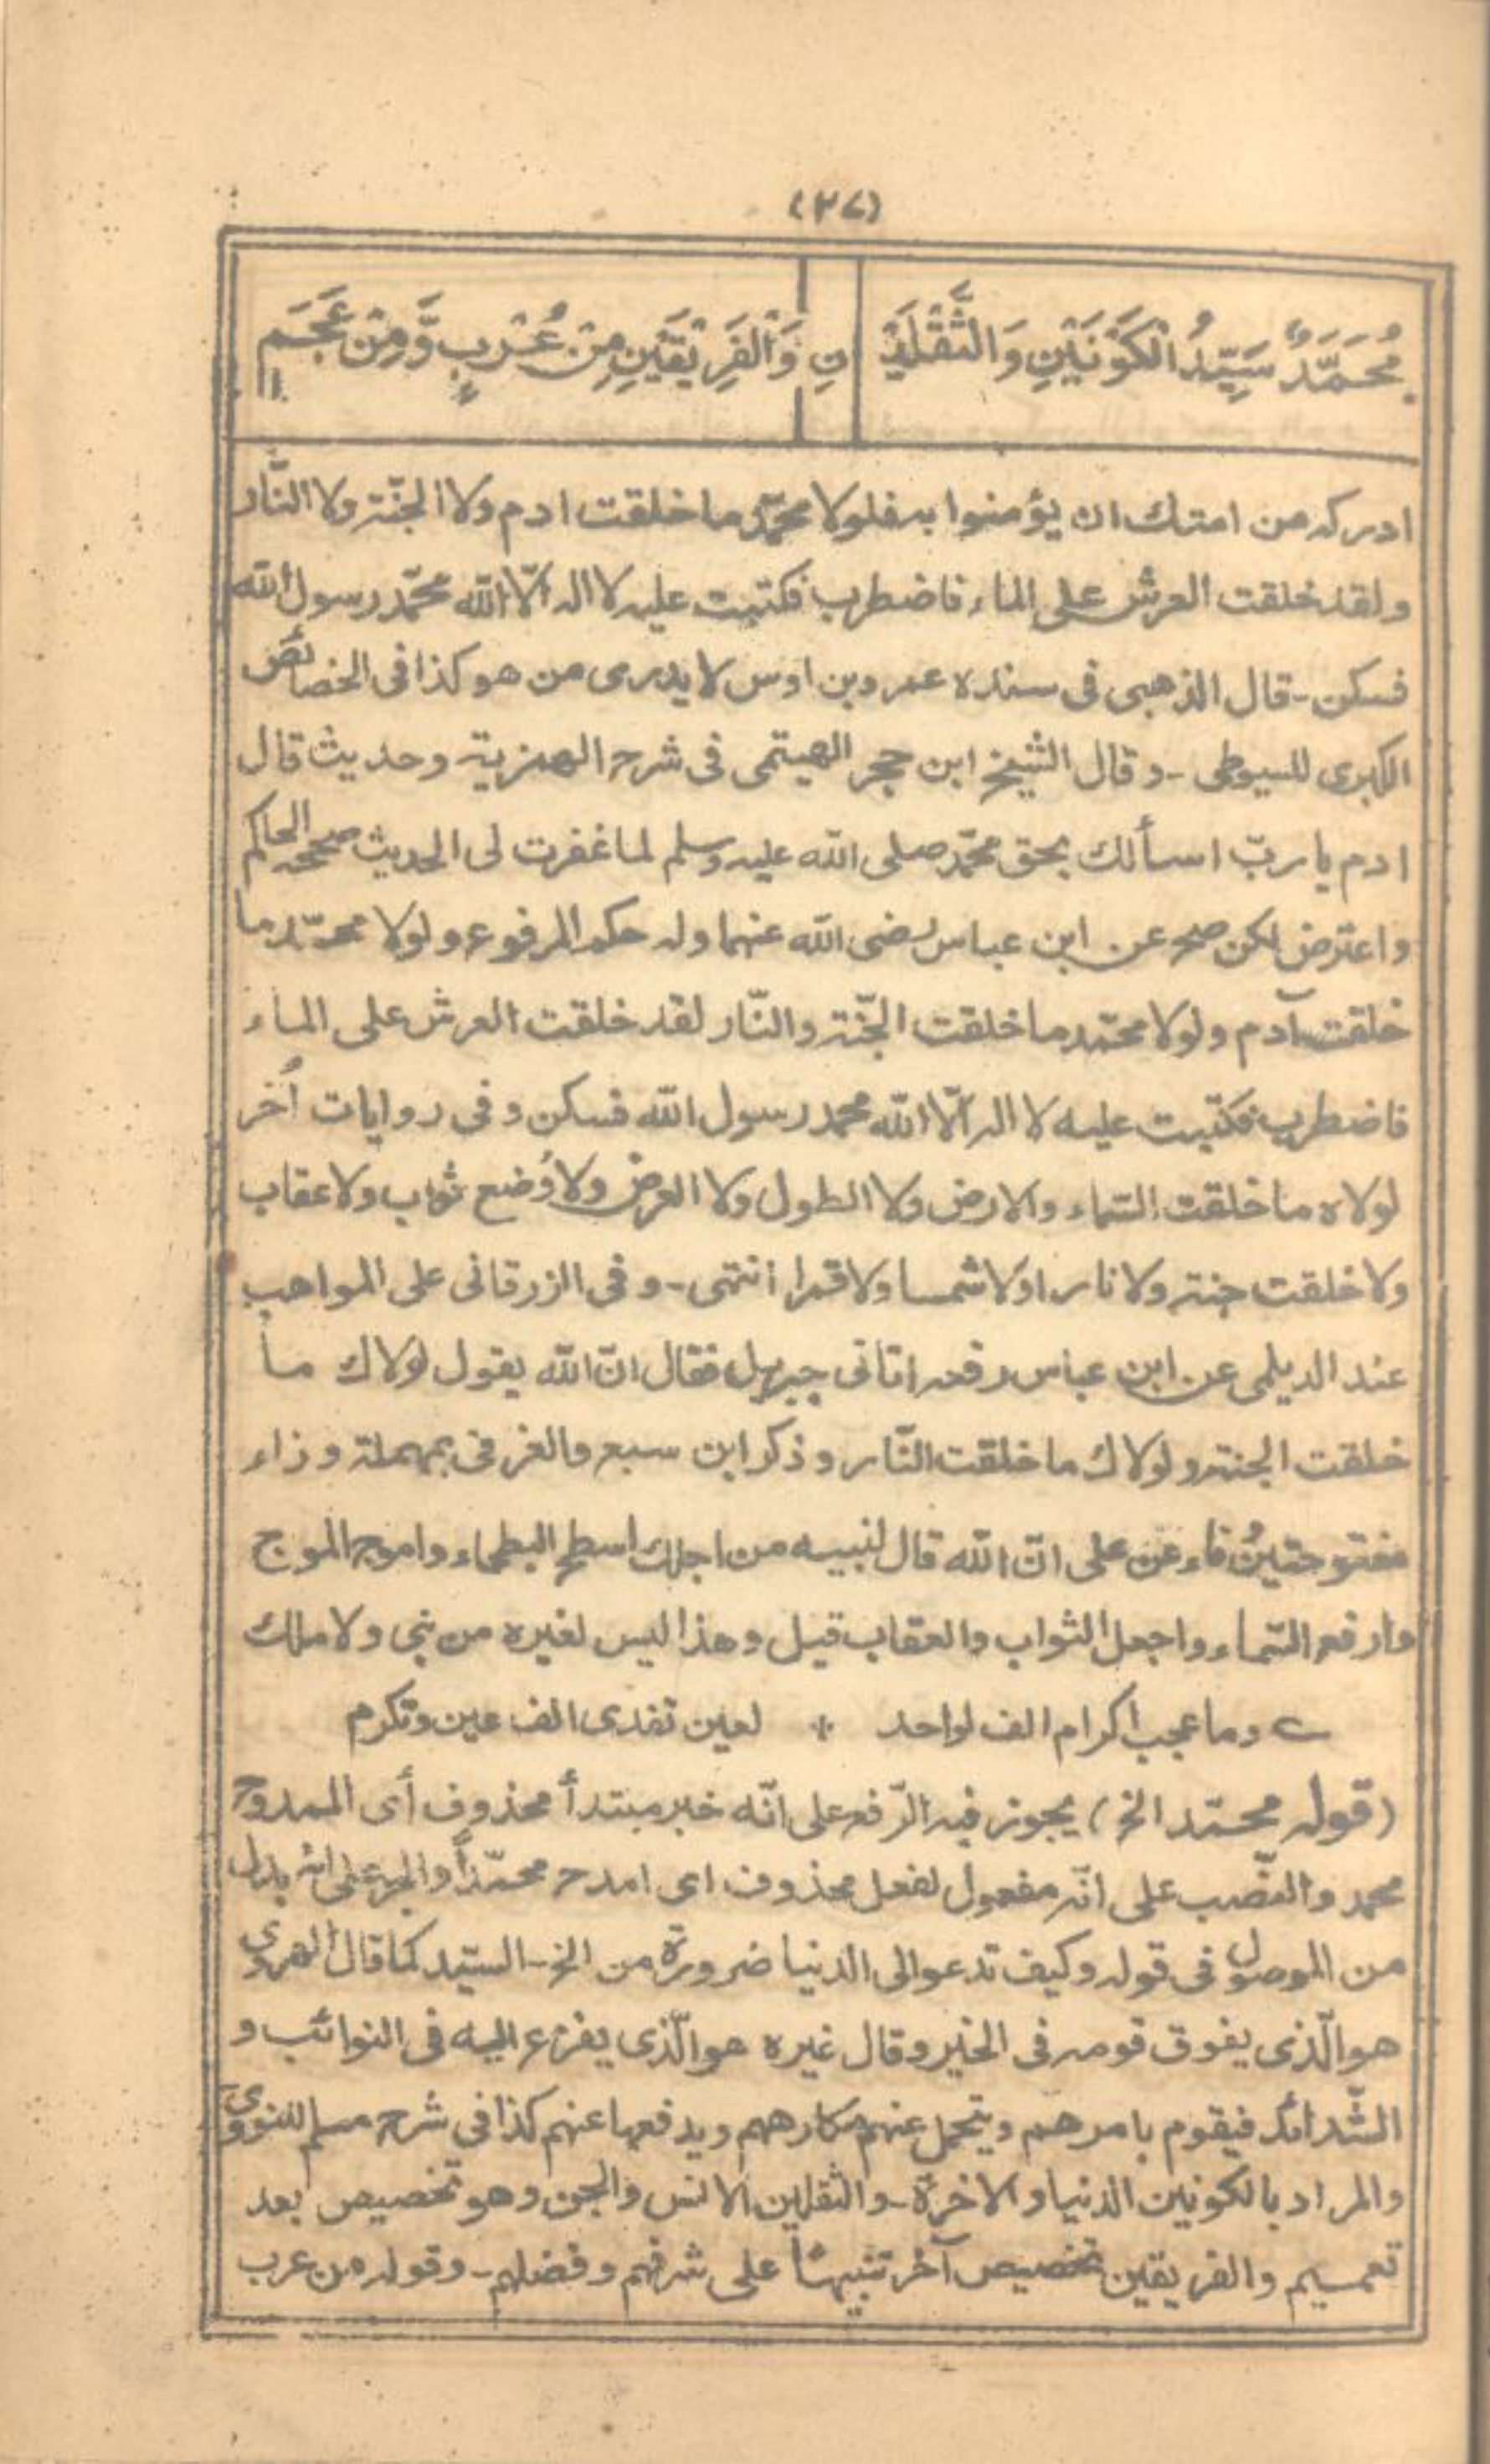 (٣٧)
مُحَمَّدٌ سَيِّدُ الْكَوْنَيْنِ وَالثَّقَلَيْنِ وَالْفَرِيْقَيْنِ مِنْ عُرْبٍ وَّمِنْ عَجَمِ
ادركه من امتك ان يؤمنوا به فلولا محمّد ما خلقت ادم ولا الجنّة ولا النّار
ولقد خلقت العرش على الماء فاضطرب فكتبت عليه لا اله الّا الله محمّد رسول الله
فسكن - قال الذهبى فى سنده عمرو بن اوس لا يدرى من هو كذا فى الخصائص
الكبرى للسيوطى - وقال الشيخ ابن حجر الهيتمى فى شرح الهمزية وحديث قال
ادم يا ربّ اسألك بحق محمّد صلى الله عليه وسلم لما غفرت لى الحديث صححه الحاكم
واعترض لكن صح عن ابن عباس رضى الله عنهما وله حكم المرفوع ولولا محمّد ما
خلقت آدم ولولا محمّد ما خلقت الجنّة والنّار لقد خلقت العرش على الماء
فاضطرب فكتبت عليه لا اله الّا الله محمد رسول الله فسكن وفى روايات أُخر
لولاه ما خلقت السّماء والارض ولا الطول ولا العرض ولا وُضع ثواب ولا عقاب
ولا خلقت جنة ولا نارا ولا شمسا ولا قمرا انتهى - وفى الزرقانى على المواهب
عند الديلمى عن ابن عباس رفعه اتانى جبريل فقال انّ الله يقول لولاك ما
خلقت الجنة ولولاك ما خلقت النّار وذكر ابن سبع والعزفى بمهملة وزاء
مفتوحتين وفاء عن على انّ الله قال لنبيه من اجلك اسطح البطحاء واموج الموج
وارفع السّماء واجعل الثواب والعقاب قيل وهذا ليس لغيره من نبى ولا ملك
؎ وما عجب اكرام الف لواحد * لعين تفدى الف عين وتكرم
(قوله محمّد الخ) يجوز فيه الرّفع على انّه خبر مبتدأ محذوف أى الممدوح
محمد والنّصب على انّه مفعول لفعل محذوف اى امدح محمّداً والجر على انه بدل
من الموصول فى قوله وكيف تدعو الى الدنيا ضرورة من الخ - السيّد كما قال الهروى
هو الّذى يفوق قومه فى الخير وقال غيره هو الّذى يفزع اليه فى النوائب و
الشّدائد فيقوم بامرهم ويتحمل عنهم مكارههم ويدفعها عنهم كذا فى شرح مسلم للنووىؒ
والمراد بالكونين الدنيا والاخرة - والثقلين الانس والجن وهو تخصيص بعد
تعميم والفريقين تخصيص آخر تنبيهًا على شرفهم وفضلهم - وقوله من عرب